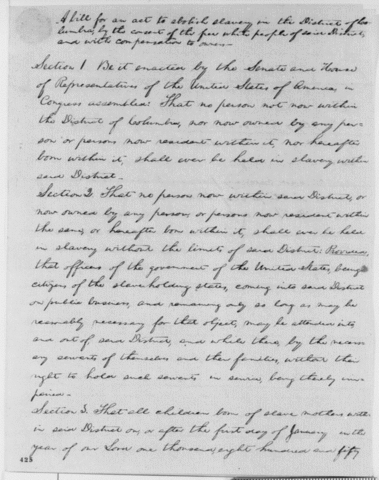 A bill for an act to abolish slavery in the District of Co-
lumbia, by the consent of the free white people of said District,
and with compensation to owners—
Section 1 Be it enacted by the Senate and House
of Representatives of the United States of America, in
Congress assembled: That no person not now within
the District of Columbia, nor now owned by any per-
son or persons now resident within it, nor hereafter
born within it, shall ever be held in slavery within
said District—
Section 2. That no person now within said District, or
now owned by any person, or persons now resident within
the same, or hereafter born within it, shall ever be held
in slavery without the limits of said District: Provided,
that officers of the government of the United States, being
citizens of the slave-holding states, coming into said District
on public business, and remaining only so long as may be
reasonably necessary for that object, may be attended into
and out of said District, and while there, by the necess-
ary servants of themselves and their families, without their
right to hold such servants in service, being thereby im-
paired—
Section 3. That all children born of slave mothers with-
in said District on, or after the first day of January in the
year of our Lord one thousand, eight hundred and fifty
423